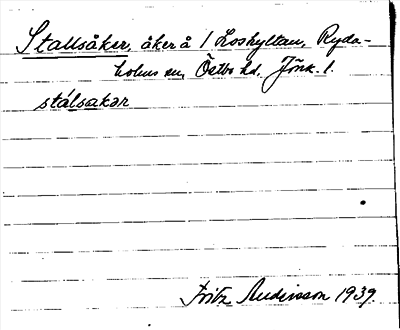 Stallsåker, åker å 1 Loshyltan, Ryda-
holms sn, Östbo hd, Jönk. l.
stálsakər
Fritz Andersson 1939